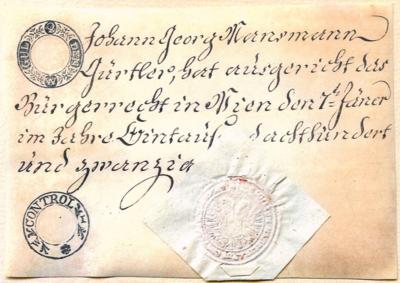 GULDEN
Johann Georg Mansmann
Gürtler, hat ausgericht das
Bürgerrecht in Wien den 7t. Jäner
im Jahre Eintaus dachthundert
und zwanzig
CONTROL